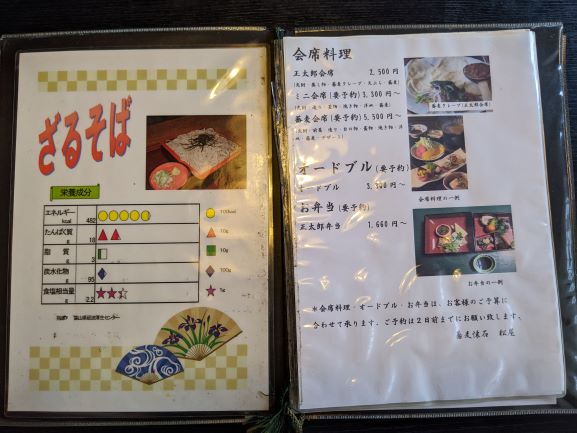 ざるそば
栄養成分
エネルギー kcal 482 100kcal
たんぱく質 g 18 10g
脂質 g 3 10g
炭水化物 g 95 100g
食塩相当量 g 2.2 1g
富山県
センター
会席料理
正太郎会席 2,500円
ミニ会席(要予約) 3,300円〜
蕎麦会席(要予約) 5,500円〜
蕎麦クレープ(正太郎会席)
オードブル(要予約)
オードブル 3,300円〜
会席料理の一例
お弁当(要予約)
正太郎弁当 1,660円〜
お弁当の一例
*会席料理・オードブル・お弁当は、お客様のご予算に
合わせて承ります。ご予約は2日前までにお願い致します。
蕎麦懐石 松屋